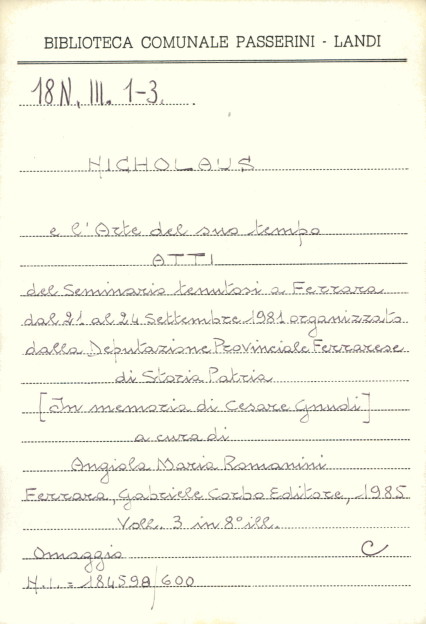 BIBLIOTECA COMUNALE PASSERINI - LANDI
18N. III. 1-3.
NICHOLAUS
e l'Arte del suo tempo
ATTI
del Seminario tenutosi a Ferrara
dal 21 al 24 Settembre 1981 organizzato
dalla Deputazione Provinciale Ferrarese
di Storia Patria
[In memoria di Cesare Gnudi]
a cura di
Angiola Maria Romanini
Ferrara, Gabriele Corbo Editore, 1985
Voll. 3 in 8° ill.
Omaggio C
N.I. = 184598/600